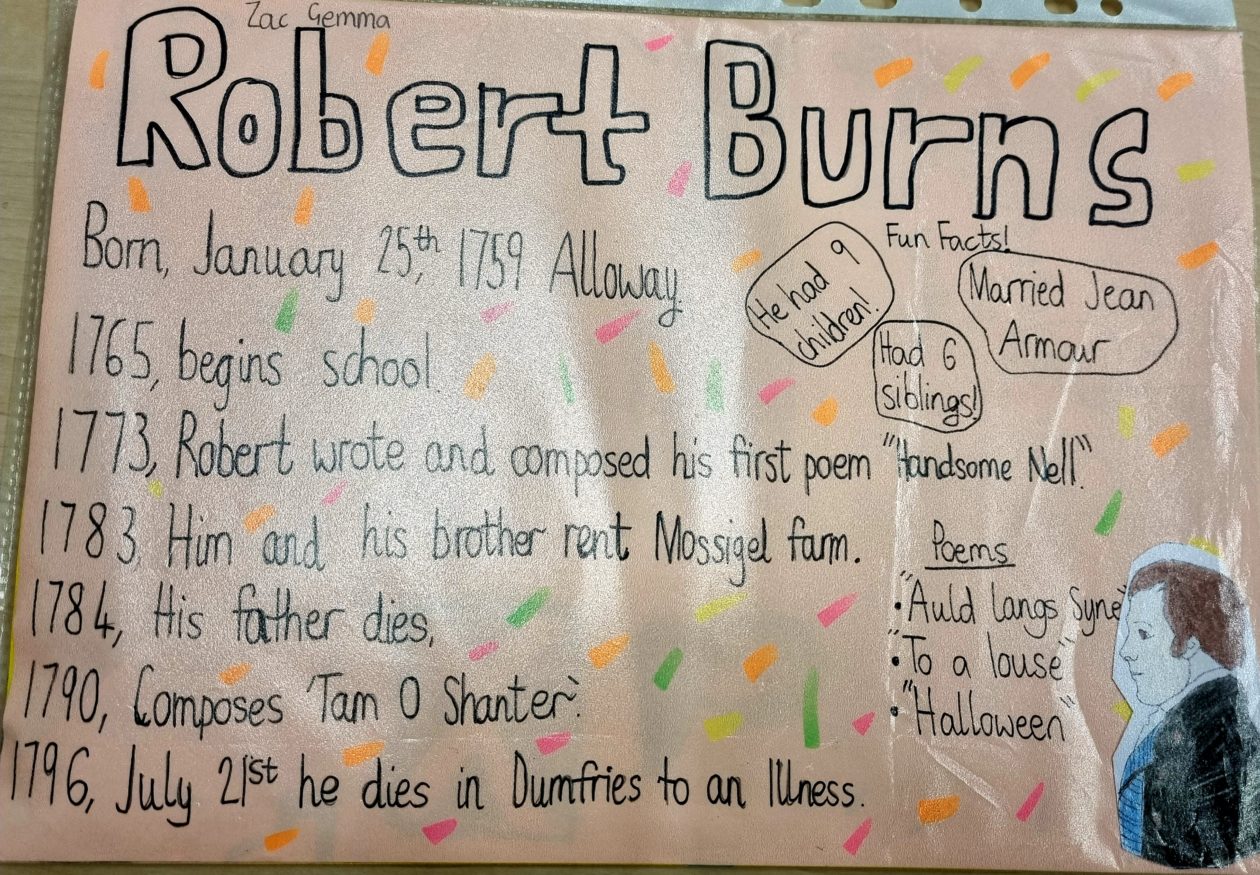 Zac Gemma
Robert Burns
Born, January 25th, 1759 Alloway.
1765, begins school.
1773, Robert wrote and composed his first poem "Handsome Nell".
1783, Him and his brother rent Mossigel farm.
1784, His father dies,
1790, Composes 'Tam O Shanter'.
1796, July 21st he dies in Dumfries to an Illness.
Fun Facts!
He had 9
children!
Married Jean
Armour
Had 6
siblings!
Poems
• "Auld langs Syne"
• "To a louse"
• "Halloween"